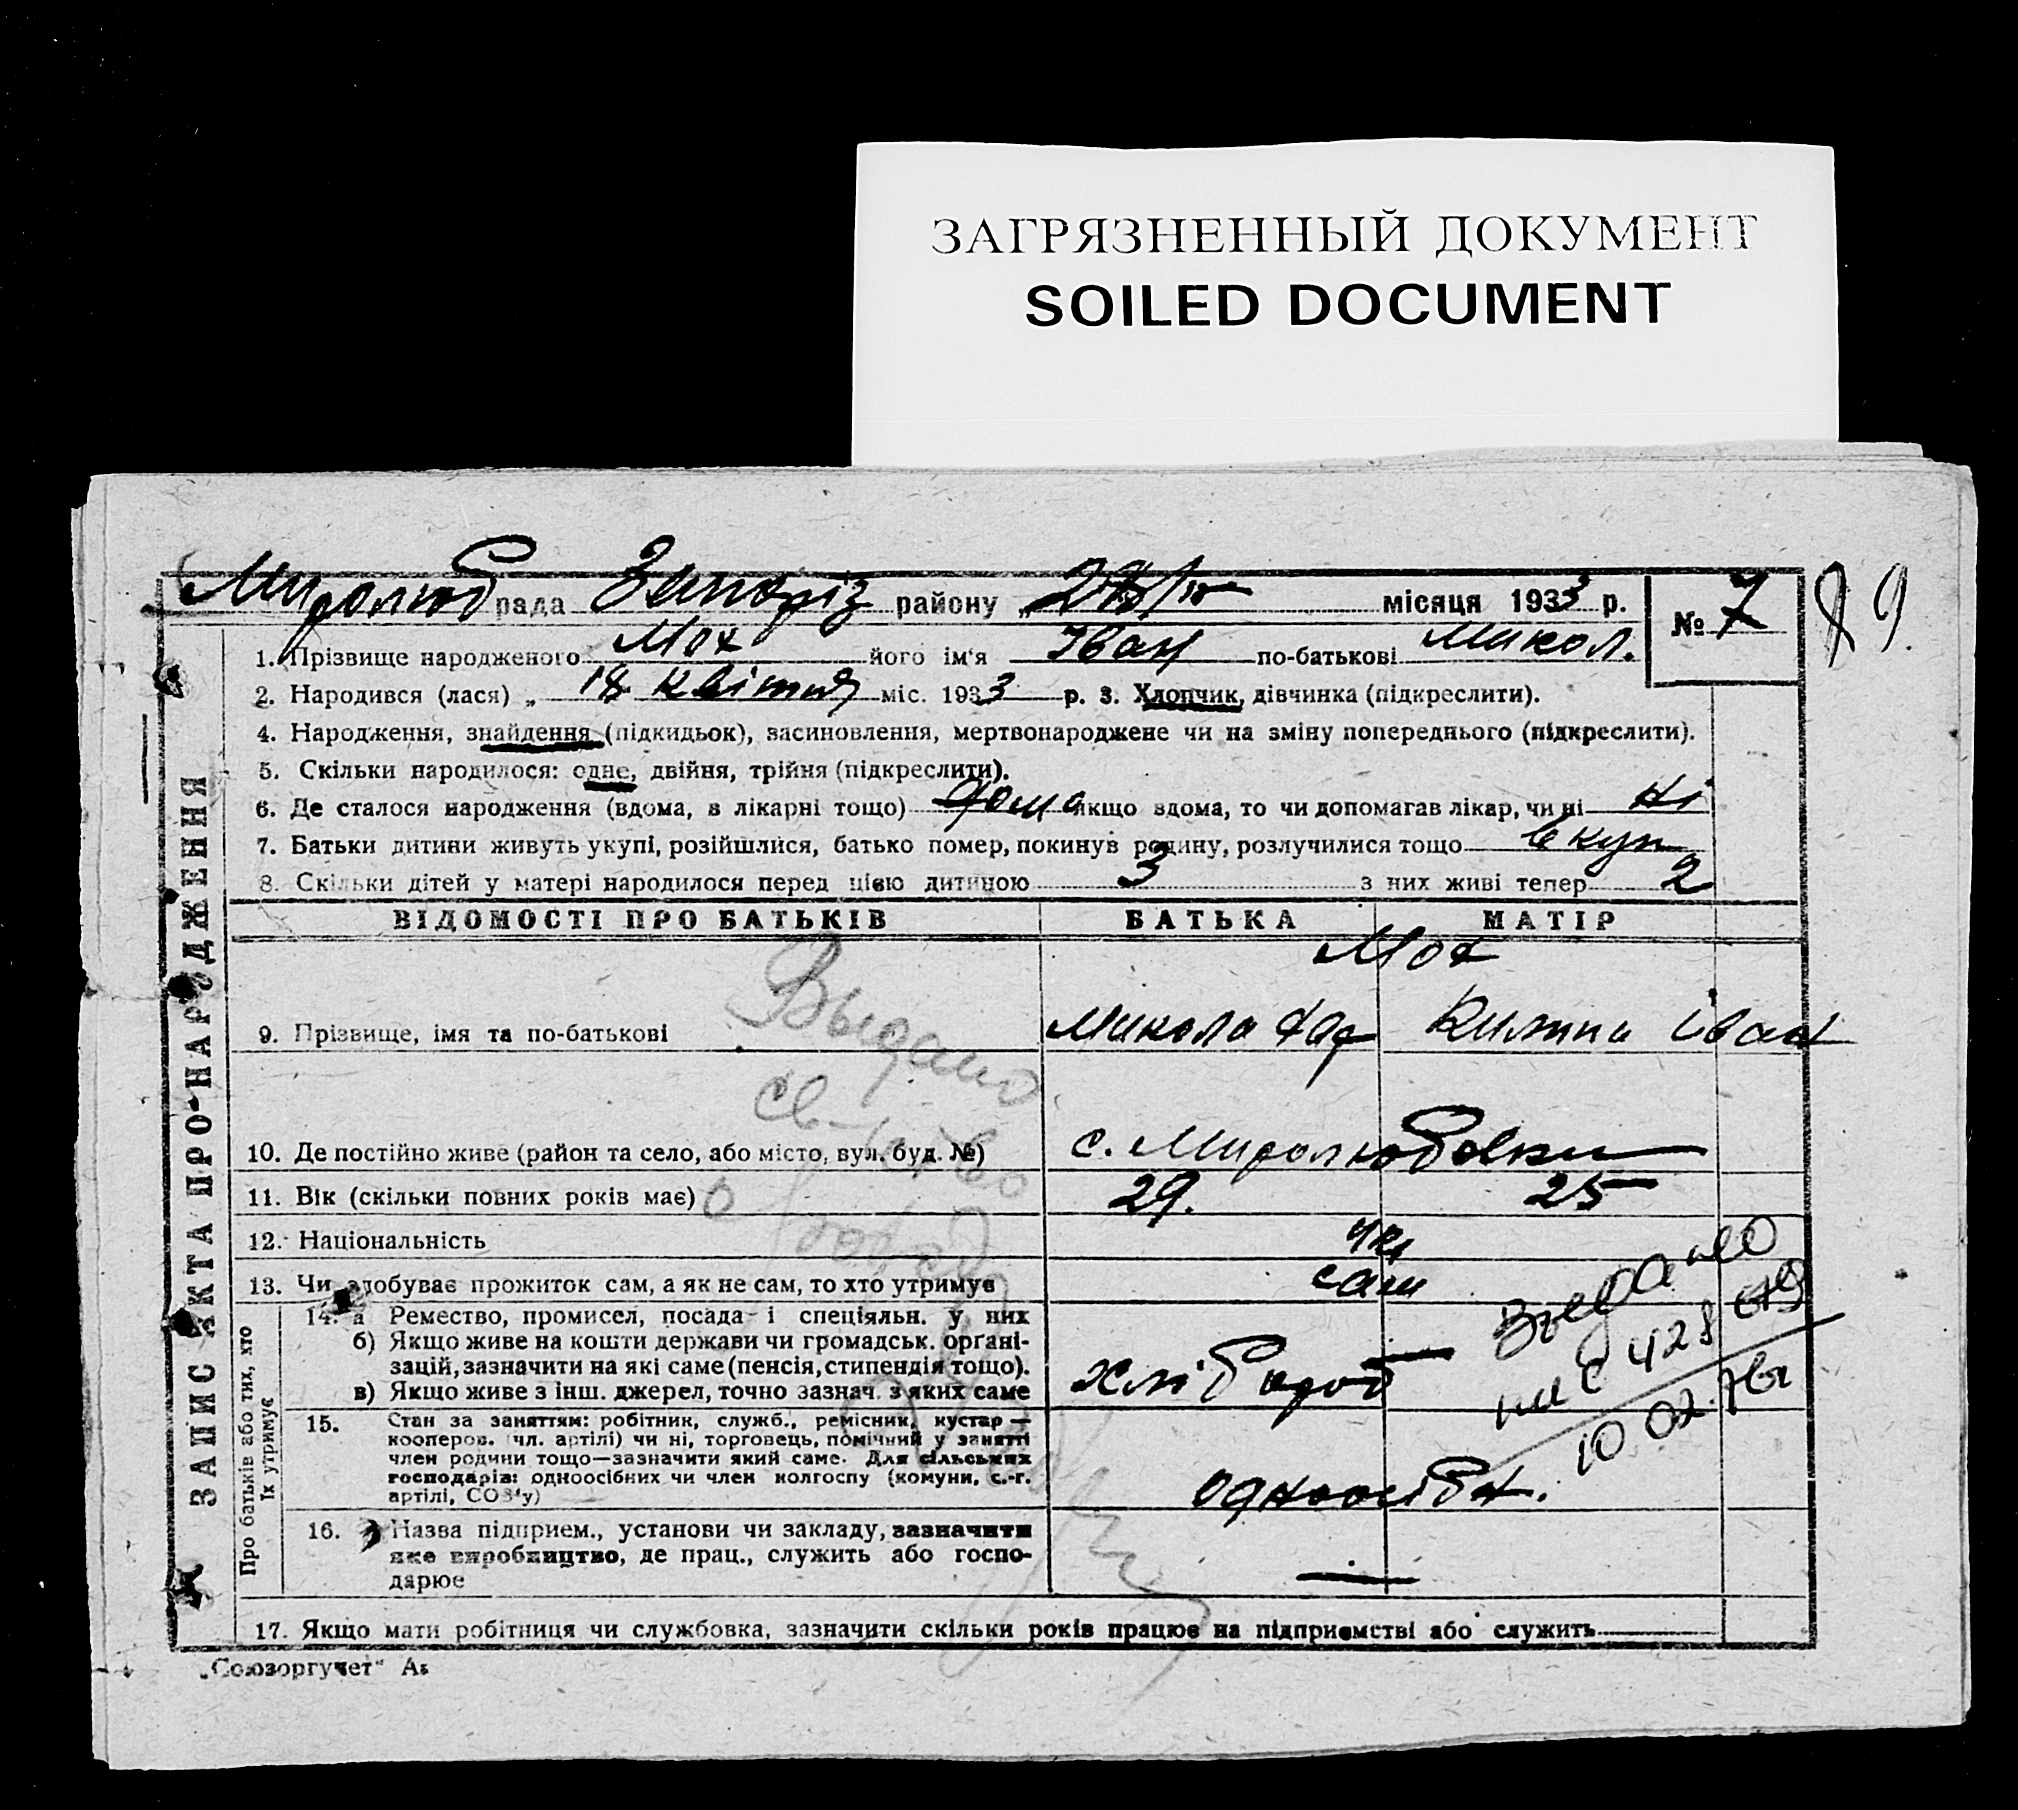 ЗАГРЯЗНЕННЫЙ ДОКУМЕНТ
SOILED DOCUMENT
Миролюб рада Запоріз району місяця 1933 р. № 7 89.
1. Прізвище народженого Мох його ім'я Іван по-батькові Микол.
2. Народився (лася) „ 18 квітня міс. 1933 р. 3. Хлопчик, дівчинка (підкреслити).
4. Народження, знайдення (підкидьок), засиновлення, мертвонароджене чи на зміну попереднього (підкреслити).
5. Скільки народилося: одне, двійня, трійня (підкреслити).
6. Де сталося народження (вдома, в лікарні тощо) дома якщо вдома, то чи допомагав лікар, чи ні ні
7. Батьки дитини живуть укупі, розійшлися, батько помер, покинув родину, розлучилися тощо вкуп
8. Скільки дітей у матері народилося перед цією дитиною 3 з них живі тепер 2
ЗАПИС АКТА ПРО НАРОДЖЕННЯ
ВІДОМОСТІ ПРО БАТЬКІВ БАТЬКА МАТІР
Мох
9. Прізвище, імя та по-батькові Микола Іван
10. Де постійно живе (район та село, або місто, вул. буд. №) с. Миролюбовки
11. Вік (скільки повних років має) 29. 25
12. Національність укр
13. Чи здобуває прожиток сам, а як не сам, то хто утримує сам
Про батьків або тих, хто
їх утримує
14. а Ремество, промисел, посада і спеціяльн. у них
б) Якщо живе на кошти держави чи громадськ. органі-
зацій, зазначити на які саме (пенсія, стипендія тощо).
в) Якщо живе з інш. джерел, точно зазнач. з яких саме
хлібороб
15. Стан за заняттям: робітник, служб., ремісник, кустар —
кооперов. (чл. артілі) чи ні, торговець, помічний у занятті
член родини тощо—зазначити який саме. Для сільських
господарів: одноосібних чи член колгоспу (комуни, с.-г.
артілі, СОЗ'у)
одноосібн.
16. Назва підприєм., установи чи закладу, зазначити
яке виробництво, де прац., служить або госпо-
дарює
17. Якщо мати робітниця чи службовка, зазначити скільки років працює на підприємстві або служить
Выдано
св-тво
о
Выдано
10 02
„Союзоргучет"